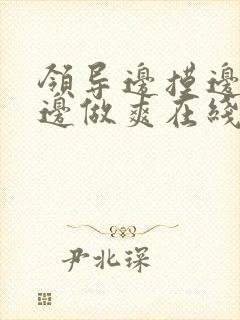 領导邊摸邊
邊做爽在綫
尹北琛